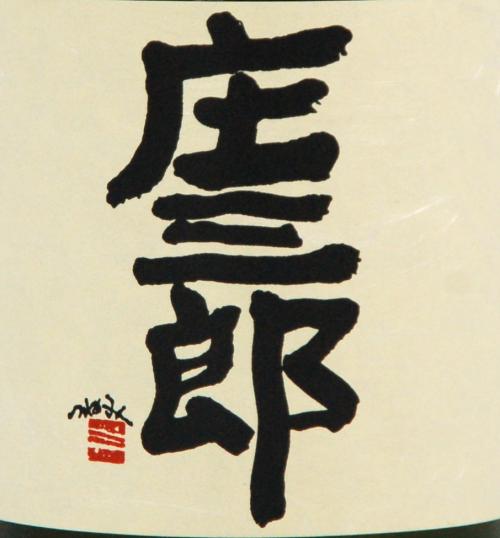 庄三郎